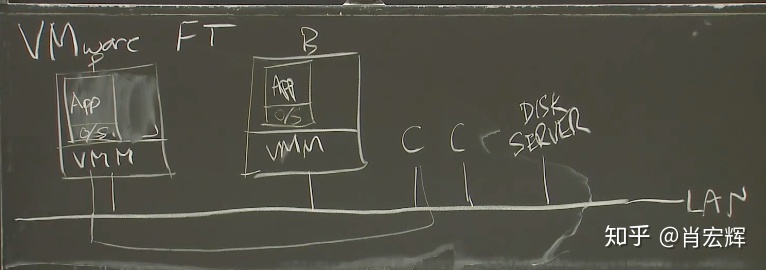 VMware FT
P
B
App
O/S
VMM
App
O/S
VMM
C
C
DISK
SERVER
LAN
知乎 @肖宏辉